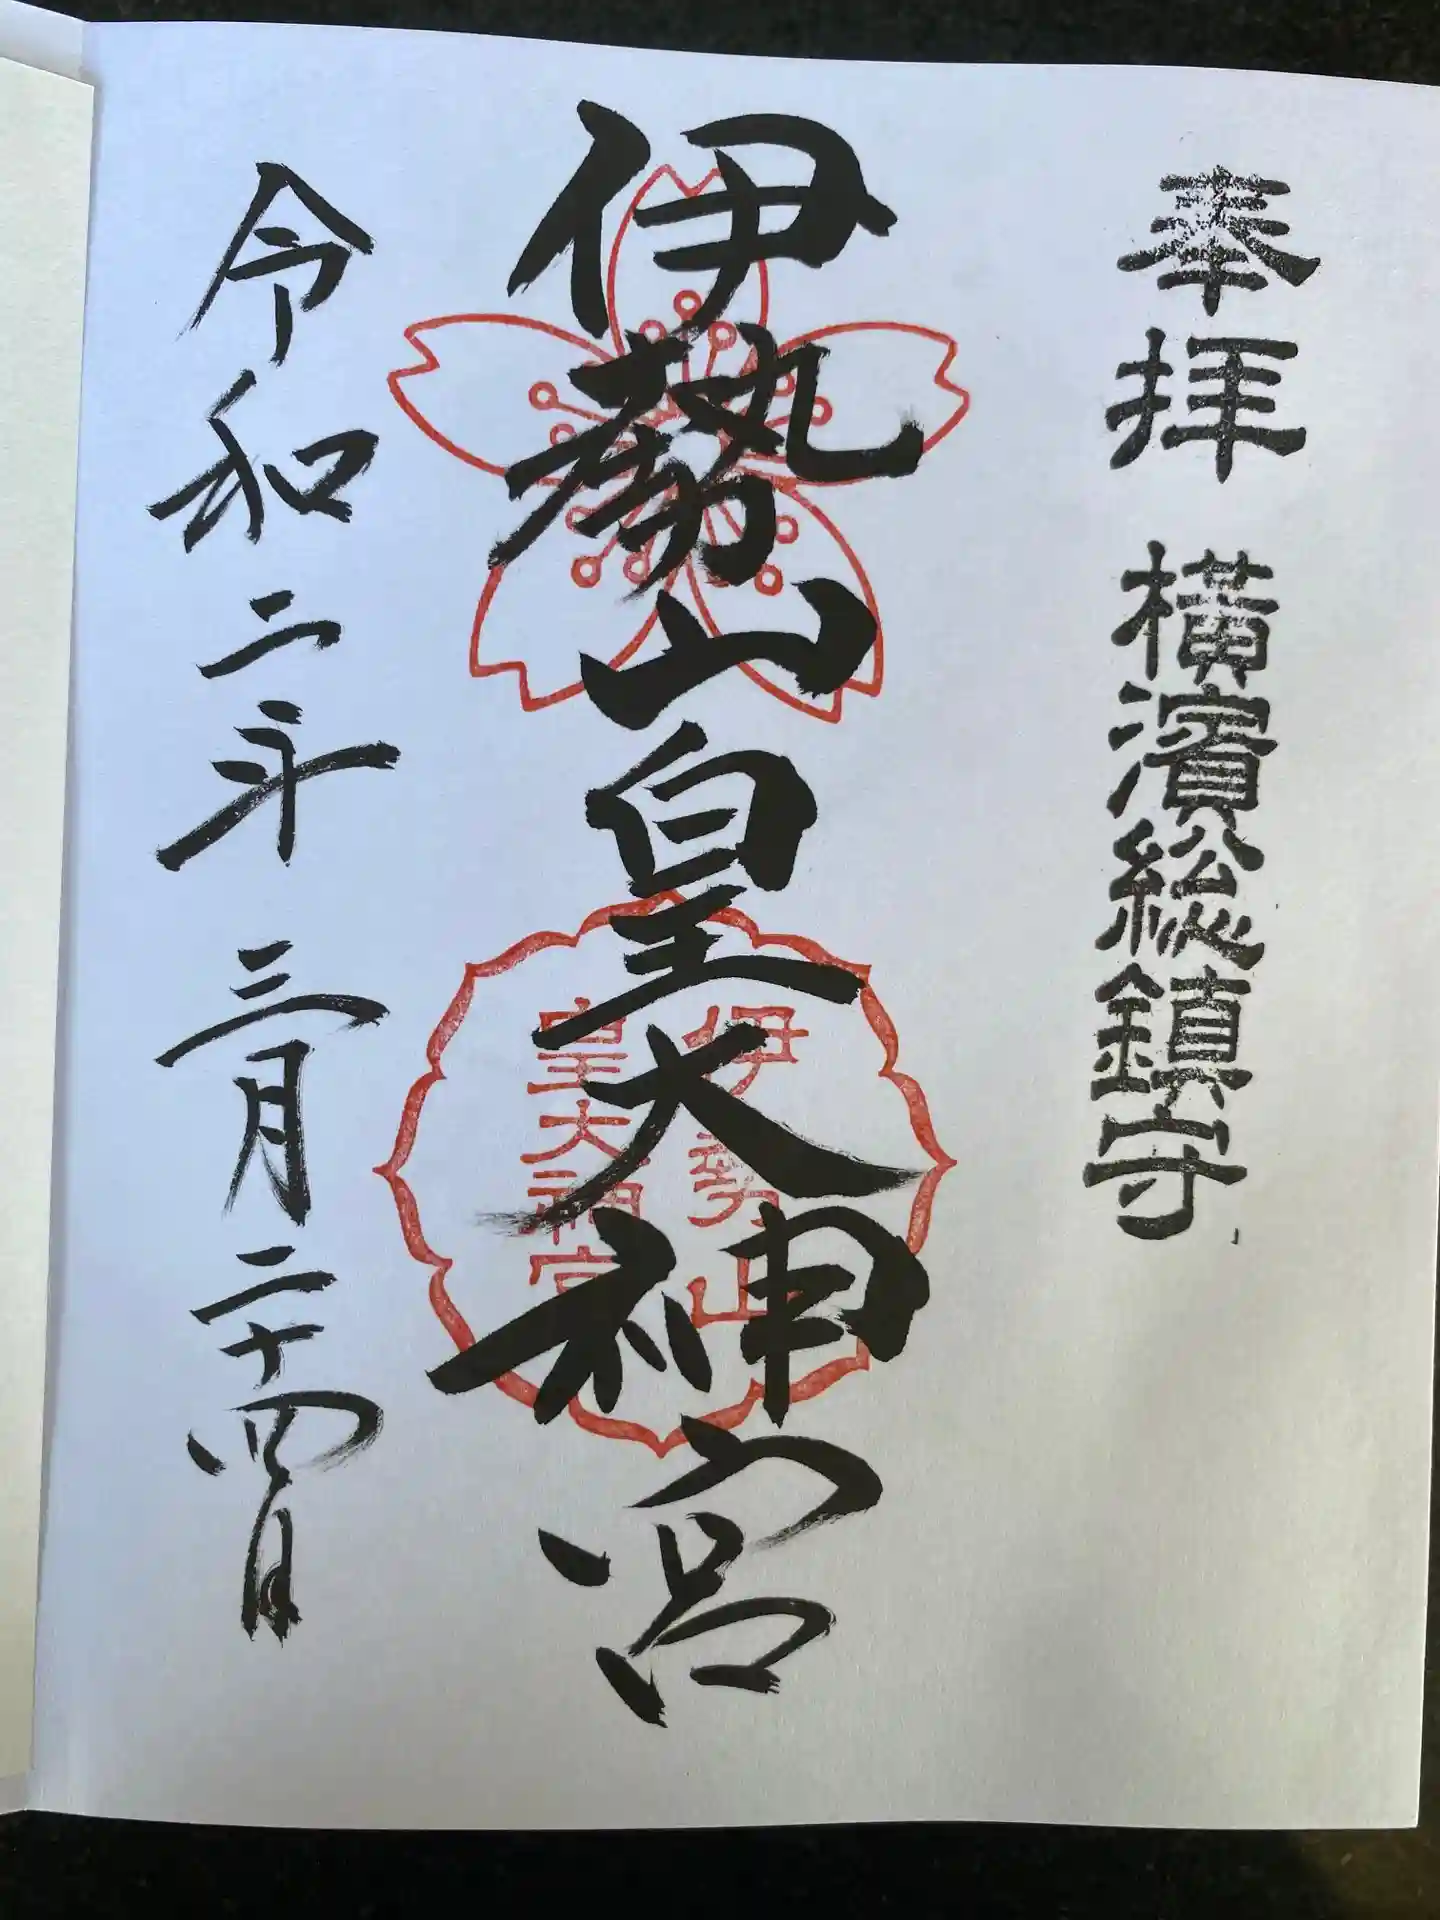 奉拝 横濱総鎮守
伊勢山皇大神宮
伊勢山
皇大神宮
令和二年三月二十四日